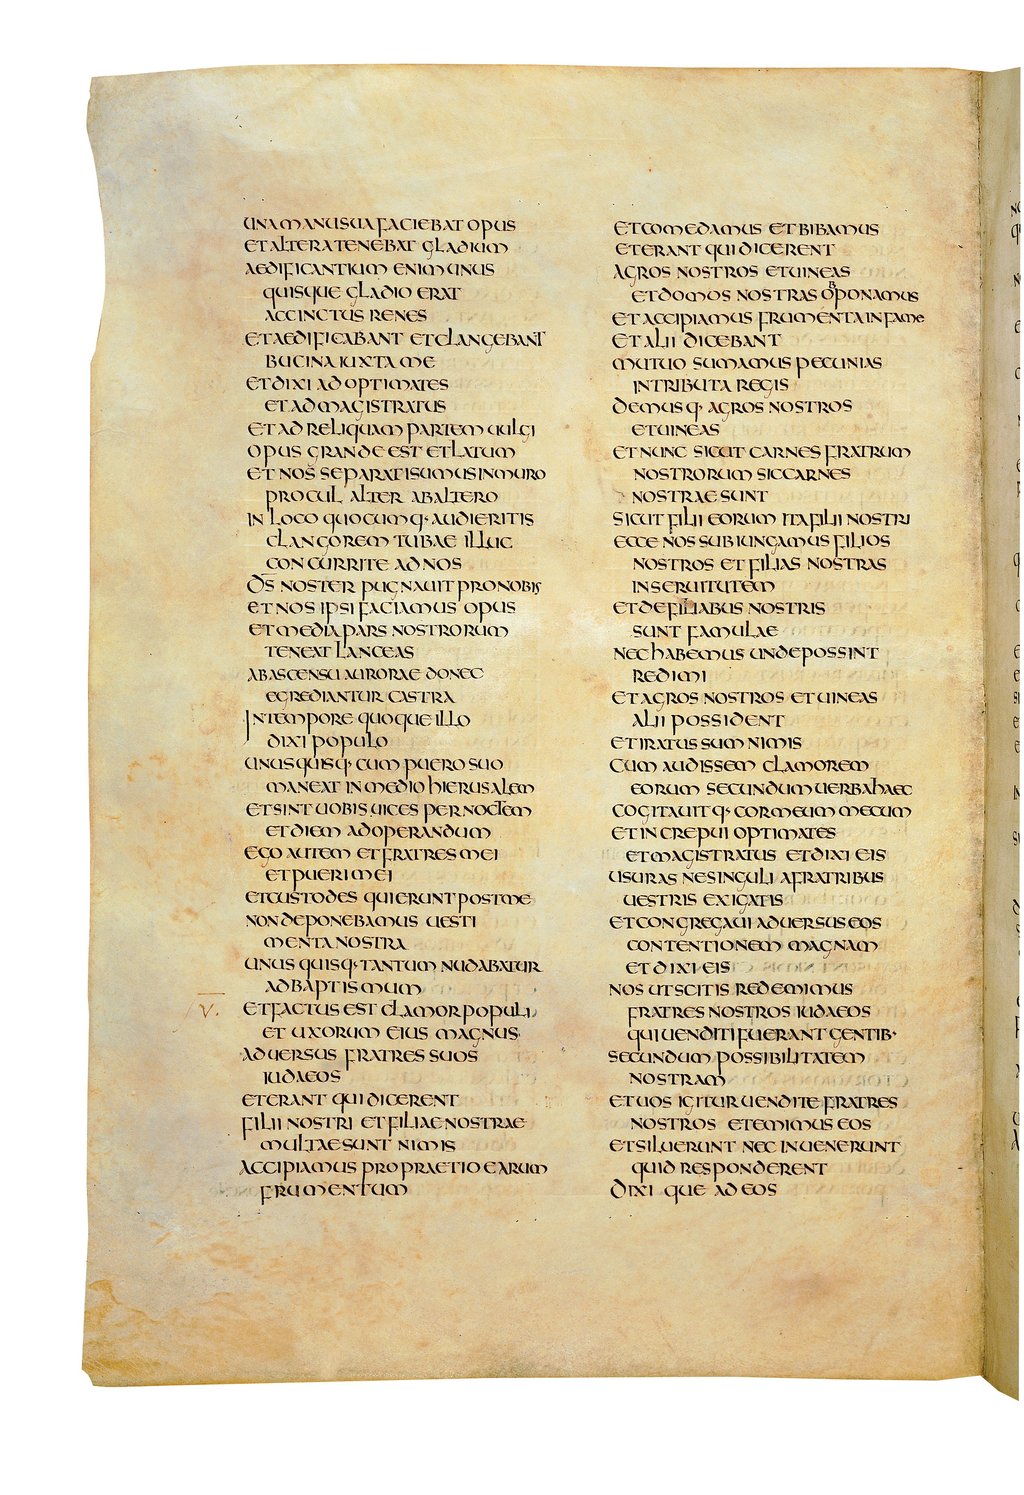 UNA MANU SUA FACIEBAT OPUS
ET ALTERA TENEBAT GLADIUM
AEDIFICANTIUM ENIM UNUS
QUISQUE GLADIO ERAT
ACCINCTUS RENES
ET AEDIFICABANT ET CLANGEBANT
BUCINA IUXTA ME
ET DIXI AD OPTIMATES
ET AD MAGISTRATUS
ET AD RELIQUAM PARTEM UULGI
OPUS GRANDE EST ET LATUM
ET NOS SEPARATI SUMUS IN MURO
PROCUL ALTER AB ALTERO
IN LOCO QUOCUMQ· AUDIERITIS
CLANGOREM TUBAE ILLUC
CONCURRITE AD NOS
D̅S̅ NOSTER PUGNAUIT PRO NOBIS
ET NOS IPSI FACIAMUS OPUS
ET MEDIA PARS NOSTRORUM
TENEAT LANCEAS
AB ASCENSU AURORAE DONEC
EGREDIANTUR CASTRA
IN TEMPORE QUOQUE ILLO
DIXI POPULO
UNUSQUISQ· CUM PUERO SUO
MANEAT IN MEDIO HIERUSALEM
ET SINT UOBIS UICES PER NOCTEM
ET DIEM AD OPERANDUM
EGO AUTEM ET FRATRES MEI
ET PUERI MEI
ET CUSTODES QUI ERUNT POST ME
NON DEPONEBAMUS UESTI
MENTA NOSTRA
UNUSQUISQ· TANTUM NUDABATUR
AD BAPTISMUM
V. ET FACTUS EST CLAMOR POPULI
ET UXORUM EIUS MAGNUS
ADUERSUS FRATRES SUOS
IUDAEOS
ET ERANT QUI DICERENT
FILII NOSTRI ET FILIAE NOSTRAE
MULTAE SUNT NIMIS
ACCIPIAMUS PRO PRAETIO EARUM
FRUMENTUM
ET COMEDAMUS ET BIBAMUS
ET ERANT QUI DICERENT
AGROS NOSTROS ET UINEAS
ET DOMOS NOSTRAS OPBONAMUS
ET ACCIPIAMUS FRUMENTA IN FAME
ET ALII DICEBANT
MUTUO SUMAMUS PECUNIAS
IN TRIBUTA REGIS
DEMUSQ· AGROS NOSTROS
ET UINEAS
ET NUNC SICUT CARNES FRATRUM
NOSTRORUM SIC CARNES
NOSTRAE SUNT
SICUT FILII EORUM ITA FILII NOSTRI
ECCE NOS SUBIUNGAMUS FILIOS
NOSTROS ET FILIAS NOSTRAS
IN SERUITUTEM
ET DE FILIABUS NOSTRIS
SUNT FAMULAE
NEC HABEMUS UNDE POSSINT
REDIMI
ET AGROS NOSTROS ET UINEAS
ALII POSSIDENT
ET IRATUS SUM NIMIS
CUM AUDISSEM CLAMOREM
EORUM SECUNDUM UERBA HAEC
COGITAUITQ· COR MEUM MECUM
ET INCREPUI OPTIMATES
ET MAGISTRATUS ET DIXI EIS
USURAS NE SINGULI A FRATRIBUS
UESTRIS EXIGATIS
ET CONGREGAUI ADUERSUS EOS
CONTENTIONEM MAGNAM
ET DIXI EIS
NOS UT SCITIS REDEMIMUS
FRATRES NOSTROS IUDAEOS
QUI UENDITI FUERANT GENTIB·
SECUNDUM POSSIBILITATEM
NOSTRAM
ET UOS IGITUR UENDITE FRATRES
NOSTROS ET EMIMUS EOS
ET SILUERUNT NEC INUENERUNT
QUID RESPONDERENT
DIXIQUE AD EOS